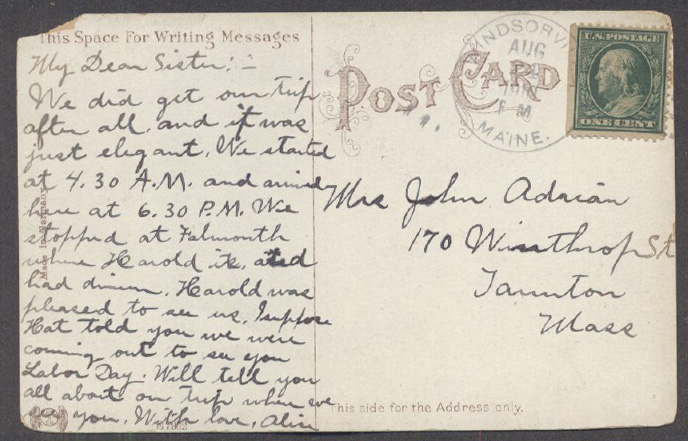 This Space For Writing Messages
My Dear Sister:-
We did get our trip
after all, and it was
just elegant. We started
at 4.30 A.M. and arrived
here at 6.30 P.M. We
stopped at Falmouth
where Harold is, and
had dinner. Harold was
pleased to see us. Suppose
Hat told you we were
coming out to see you
Labor Day. Will tell you
all about our trip when we
see you. With love, Alice
POST CARD
WINDSORVI
AUG
PM
MAINE.
U.S. POSTAGE
ONE CENT
Mrs John Adrian
170 Winthrop St
Taunton
Mass
This side for the Address only.